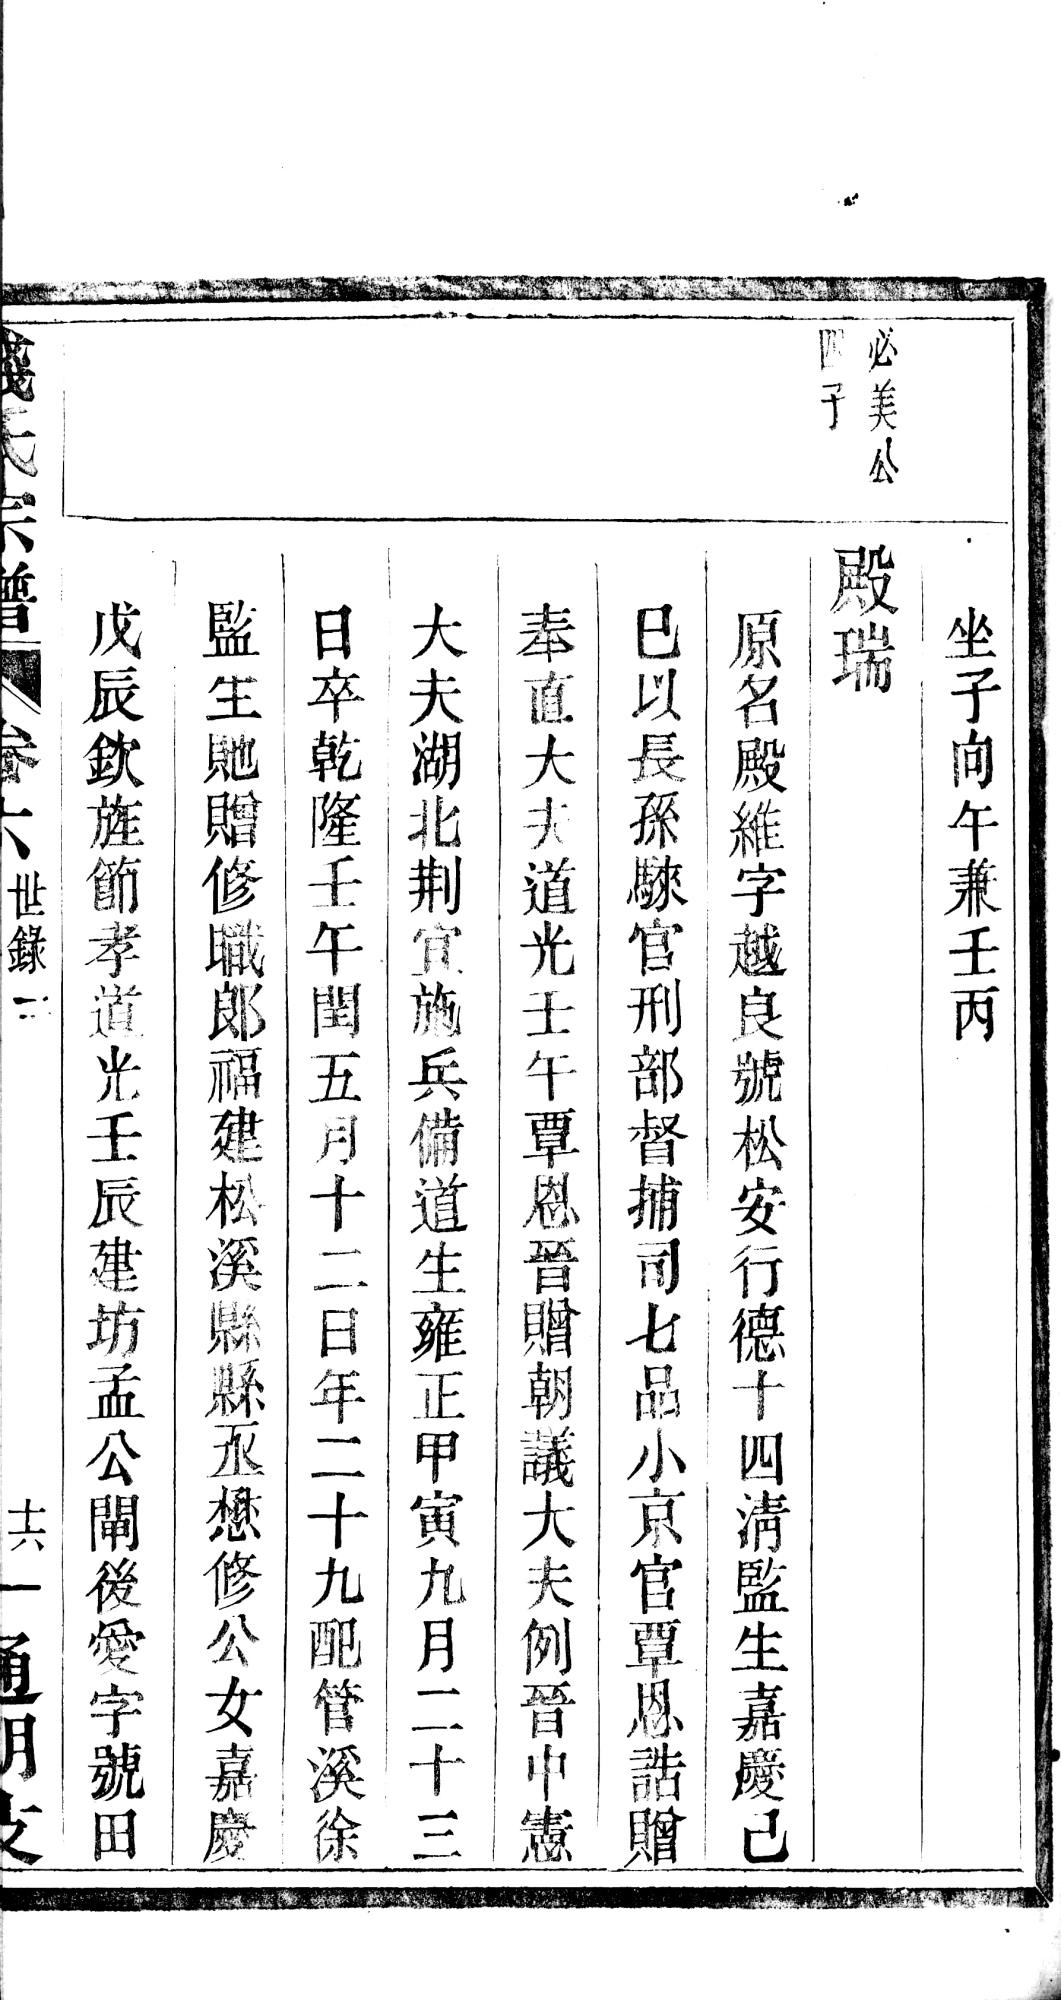 必美公
四子
坐子向午兼壬丙
殿瑞
原名殿維字越良號松安行德十四清監生嘉慶己
巳以長孫騋官刑部督捕司七品小京官覃恩誥贈
奉直大夫道光壬午覃恩晉贈朝議大夫例晉中憲
大夫湖北荆宜施兵備道生雍正甲寅九月二十三
日卒乾隆壬午閏五月十二日年二十九配管溪徐
監生貤贈修職郎福建松溪縣縣丞懋修公女嘉慶
戊辰欽旌節孝道光壬辰建坊孟公閘後愛字號田
氏宗譜
卷六
世錄
十六